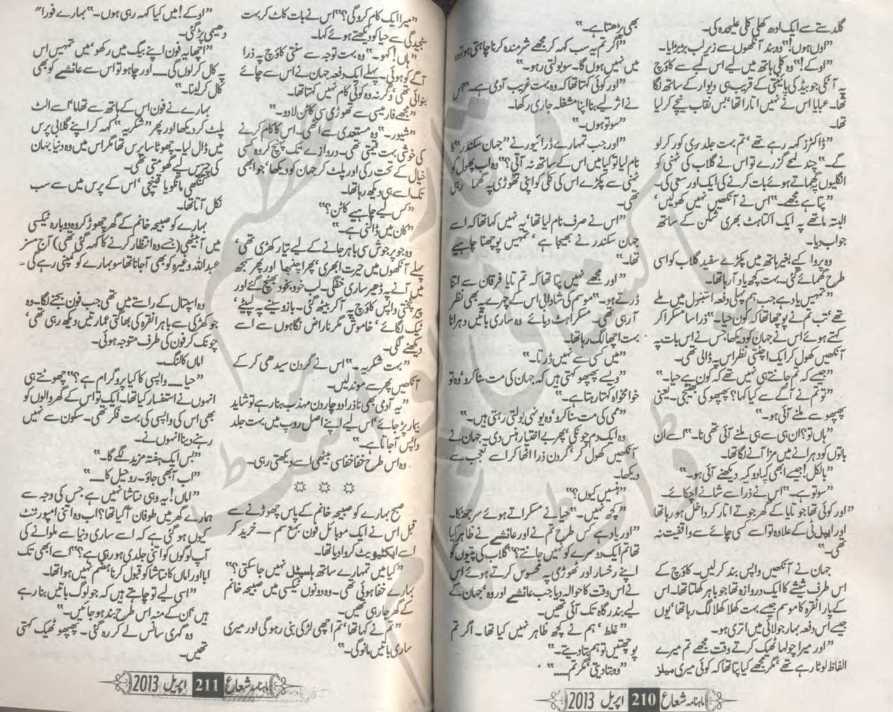 گلدستے سے ایک ادھ کھلی کلی علیحدہ کی۔
"اوں ہوں!" وہ بند آنکھوں سے زیر لب بڑبڑایا۔
"اوکے!" وہ کلی ہاتھ میں لیے اس کے لیے سے کاؤچ
پہ آ گئی جو بیڈ کی پائنتی کے قریب ہی دیوار کے ساتھ لگا
تھا۔ عبایا اس نے نہیں اتارا تھا، بس نقاب نیچے کر لیا
تھا۔
"ڈاکٹرز کہہ رہے تھے، تم بہت جلد ری کور کر لو
گے۔" چند لمحے گزرے تو اس نے گلاب کی ٹہنی کو
انگلیوں میں گھماتے ہوئے بات کرنے کی ایک اور سعی کی۔
"پتا ہے مجھے۔" اس نے آنکھیں نہیں کھولیں،
البتہ ماتھے پہ ایک اکتاہٹ بھری شکن کے ساتھ
جواب دیا۔
وہ پروا کے بغیر ہاتھ میں پکڑے سفید گلاب کو اسی
طرح گھمائے گئی۔ بہت کچھ یاد آ رہا تھا۔
"تمہیں یاد ہے جب ہم پہلی دفعہ استنبول میں ملے
تھے تب تم نے پوچھا تھا کہ کون حیا۔" ذرا سا مسکرا کر
کہتے ہوئے اس نے جہان کو دیکھا جس نے اس بات پہ
آنکھیں کھول کر ایک اچٹتی نظر اس پہ ڈالی تھی۔
"جیسے کہ تم جانتے ہی نہیں تھے کہ کون ہے حیا۔"
"تو تم نے آگے سے کیا کہا؟ پھپھو کی بھتیجی۔ یعنی
پھپھو سے ملنے آئی ہو۔"
"ہاں تو؟ ان ہی سے ہی ملنے آئی تھی نا۔" اسے ان
باتوں کو دہرانے میں مزا آنے لگا تھا۔
"بالکل! جیسے ابھی کپادوکیہ دیکھنے آئی ہو۔"
"سو تو ہے۔" اس نے ذرا سے شانے اچکائے۔
"اور کوئی تھا جو تایا کے گھر جوتے اتار کر داخل ہو رہا تھا
اور لیڈرلی کے علاوہ تو اسے کسی چائے سے واقفیت نہ
تھی۔"
جہان نے آنکھیں واپس بند کر لیں۔ کاؤچ کے
اس طرف شیشے کا ایک دروازہ تھا جو باہر کھلتا تھا۔ اس
کے پار انقرہ کا موسم جیسے بہت کھلا کھلا لگ رہا تھا، یوں
جیسے اس دفعہ بہار جولائی میں اتری ہو۔
"اور میرا چولہا ٹھیک کرتے وقت مجھے تم میرے
الفاظ لوٹا رہے تھے، مگر مجھے کیا پتا تھا کہ کوئی میری میلز
بھی پڑھتا ہے۔"
"اگر تم یہ سب کہہ کر مجھے شرمندہ کرنا چاہتی ہو تو
میں نہیں ہوں گا۔ سو بولتی رہو۔"
"اور کوئی کہتا تھا کہ وہ بہت غریب آدمی ہے۔" اس
نے اثر لیے بنا اپنا مشغلہ جاری رکھا۔
"سو تو ہوں۔"
"اور جب تمہارے ڈرائیور نے "جہان سکندر" کا
نام لیا تو کیا میں اس کے ساتھ نہ آتی؟" وہ اب پھول کو
ٹہنی سے پکڑے اس کی کلی کو اپنی ٹھوڑی پہ گھما رہی
تھی۔
"اس نے صرف نام لیا تھا، یہ نہیں کہا تھا کہ اسے
جہان سکندر نے بھیجا ہے، تمہیں پوچھنا چاہیے
تھا۔"
"اور مجھے نہیں پتا تھا کہ تم تایا فرقان سے اتنا
ڈرتے ہو۔" موسم کی شادابی اس کے چہرے پہ بھی نظر
آ رہی تھی۔ مسکراہٹ دبائے وہ ساری باتیں دہرانا
بہت اچھا لگ رہا تھا۔
"میں کسی سے نہیں ڈرتا۔"
"ویسے پھپھو کہتی ہیں کہ جہان کی مت سنا کرو، وہ تو
خوامخواہ کہتا رہتا ہے۔"
"ممی کی مت سنا کرو، وہ یونہی بولتی رہتی ہیں۔"
وہ ایک دم چونکی، پھر بے اختیار ہنس دی۔ جہان نے
آنکھیں کھول کر، گردن ذرا اٹھا کر اسے تعجب سے
دیکھا۔
"ہنسیں کیوں؟"
"کچھ نہیں۔" حیا نے مسکراتے ہوئے سر جھٹکا۔
"اور یاد ہے کس طرح تم نے اور عائشے نے ظاہر کیا
تھا تم ایک دوسرے کو نہیں جانتے؟" گلاب کی پتیوں کو
اپنے رخسار اور ٹھوڑی پہ محسوس کرتے ہوئے اس
نے اس وقت کا حوالہ دیا جب عائشے اور وہ، جہان کے
لیے بندرگاہ تک آئی تھیں۔
"غلط، ہم نے کچھ ظاہر نہیں کیا تھا۔ اگر تم
پوچھتیں تو ہم بتا دیتے۔"
"وہ بتا دیتی، مگر تم۔۔۔"
ماہنامہ شعاع 210 اپریل 2013
"میرا ایک کام کرو گی؟" اس نے بات کاٹ کر بہت
سنجیدگی سے حیا کو دیکھتے ہوئے کہا۔
"ہاں! کہو۔" وہ بہت توجہ سے سنتی کاؤچ پہ ذرا
آگے کو ہوئی۔ پہلے ایک دفعہ جہان نے اس سے چائے
بنوائی تھی، وگرنہ وہ کوئی کام نہیں کہتا تھا۔
"مجھے فارمیسی سے تھوڑی سی کاٹن لا دو۔"
"شیور۔" وہ مستعدی سے اٹھی۔ اس کا کام کرنے
کی خوشی بہت قیمتی تھی۔ دروازے تک پہنچ کر وہ کسی
خیال کے تحت رکی اور پلٹ کر جہان کو دیکھا، جو ابھی
تک اسے ہی دیکھ رہا تھا۔
"کس لیے چاہیے کاٹن؟"
"کان میں ڈالنی ہے۔"
وہ جو پرجوش سی باہر جانے کے لیے تیار کھڑی تھی،
پہلے آنکھوں میں حیرت ابھری، پھر اچنبھا اور پھر سمجھ
میں آنے پہ ڈھیر ساری خفگی۔ لب خود بخود بھنچ گئے اور
پیر پٹختی واپس کاؤچ پہ آ کر بیٹھ گئی۔ بازو سینے پہ لپیٹے،
ٹیک لگائے، خاموش مگر ناراض نگاہوں سے اسے
دیکھنے لگی۔
"بہت شکریہ۔" اس نے گردن سیدھی کر کے
آنکھیں پھر سے موند لیں۔
"یہ آدمی بھی نا! ذرا دو چار دن مہذب بنا رہے تو شاید
بیمار پڑ جائے، اس لیے اپنے اصل روپ میں بہت جلد
واپس آ جاتا ہے۔"
وہ اس طرح خفا خفا سی بیٹھی اسے دیکھتی رہی۔
☼ ☼ ☼
صبح بہارے کو صبیحہ خانم کے پاس چھوڑنے سے
قبل اس نے ایک موبائل فون بمع سم۔۔۔ خرید کر
اسے ایکٹیویٹ کروا دیا تھا۔
"کیا میں تمہارے ساتھ ہاسپٹل نہیں جا سکتی؟"
بہارے خفا ہوئی تھی۔ وہ دونوں ٹیکسی میں صبیحہ خانم
کے گھر جا رہی تھیں۔
"تم نے کہا تھا، تم اچھی لڑکی بنی رہو گی اور میری
ساری باتیں مانو گی۔"
"اوکے! میں کیا کہہ رہی ہوں۔" بہارے فوراً
دھیمی پڑ گئی۔
"اچھا یہ فون اپنے بیگ میں رکھو، میں تمہیں اس
پہ کال کر لوں گی۔۔۔ اور چاہو تو اس سے عائشے کو بھی
کال کر لینا۔"
بہارے نے فون اس کے ہاتھ سے تھاما، اسے الٹ
پلٹ کر دیکھا اور پھر "شکریہ" کہہ کر اپنے گلابی پرس
میں ڈال لیا۔ چھوٹا سا پرس تھا مگر اس میں وہ دنیا جہان
کی چیزیں لیے گھومتی تھی۔
کنگھی مانگو یا قینچی، اس کے پرس میں سے سب
نکل آتا تھا۔
بہارے کو صبیحہ خانم کے گھر چھوڑ کر وہ دوبارہ ٹیکسی
میں آ بیٹھی (جسے وہ انتظار کرنے کا کہہ گئی تھی) آج مسز
عبداللہ وغیرہ کو بھی آ جانا تھا سو بہارے کو کمپنی رہے گی۔
وہ اسپتال کے راستے میں تھی جب فون بجنے لگا۔ وہ
جو کھڑکی سے باہر انقرہ کی بھاگتی عمارتیں دیکھ رہی تھی،
چونک کر فون کی طرف متوجہ ہوئی۔
اماں کالنگ۔
"حیا۔۔۔ واپسی کا کیا پروگرام ہے؟" چھوٹتے ہی
انہوں نے استفسار کیا تھا۔ ایک تو اس کے گھر والوں کو
بھی اس کی واپسی کی بہت فکر تھی۔ سکون سے نہیں
رہنے دینا انہوں نے۔
"بس ایک ہفتہ مزید لگے گا۔"
"اب آ بھی جاؤ۔ روحیل کا۔۔۔"
"اماں! یہ وہی نتاشا نہیں ہے جس کی وجہ سے
ہمارے گھر میں طوفان آ گیا تھا؟ اب وہ اتنی امپورٹنٹ
کیوں ہو گئی ہے کہ اسے ساری دنیا سے ملوانے کی
آپ لوگوں کو اتنی جلدی ہو رہی ہے؟" اسے ابھی تک
ابا اور اماں کا نتاشا کو قبول کرنا ہضم نہیں ہوا تھا۔
"اسی لیے تو چاہتے ہیں کہ جو لوگ باتیں بنا رہے
ہیں، ان کے منہ اس طرح بند ہو جائیں۔"
وہ گہری سانس لے کر رہ گئی۔ پھپھو ٹھیک کہتی
تھیں۔
ماہنامہ شعاع 211 اپریل 2013